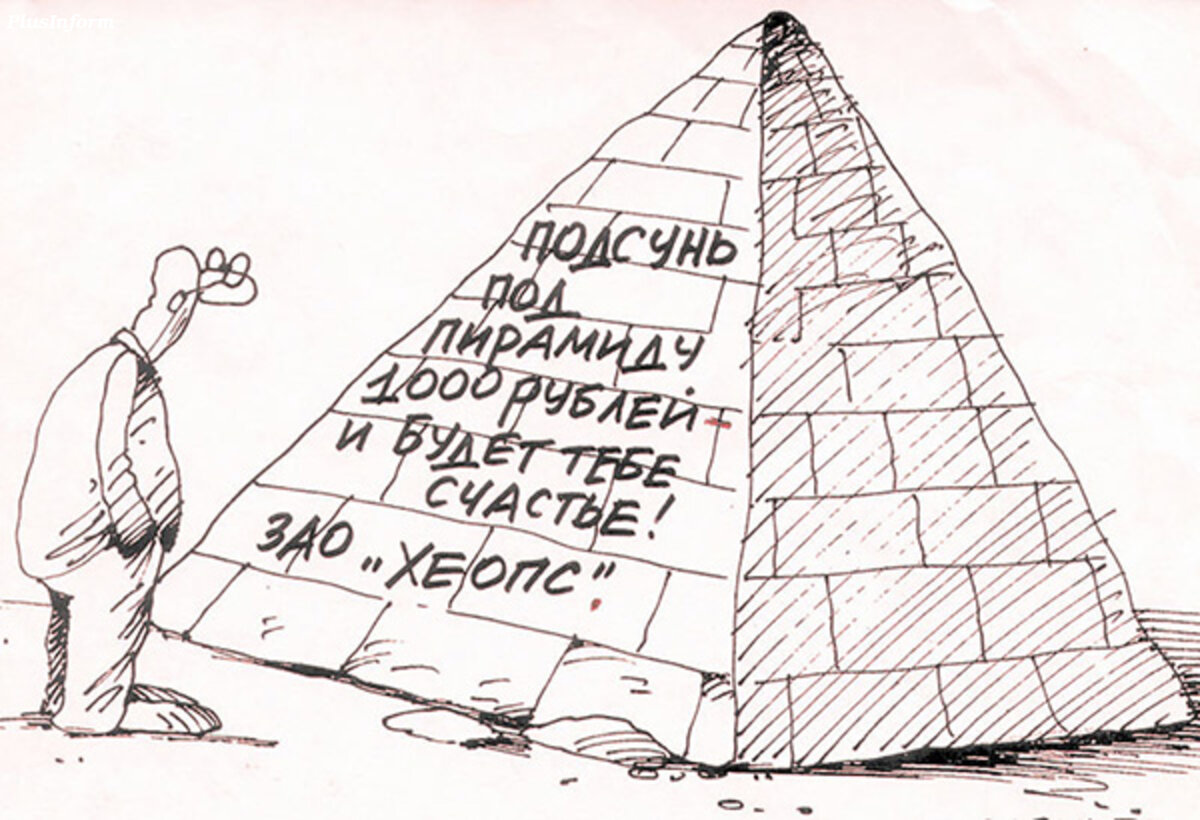 PlusInform
ПОДСУНЬ
ПОД
ПИРАМИДУ
1000 РУБЛЕЙ -
И БУДЕТ ТЕБЕ
СЧАСТЬЕ!
ЗАО „ХЕОПС"